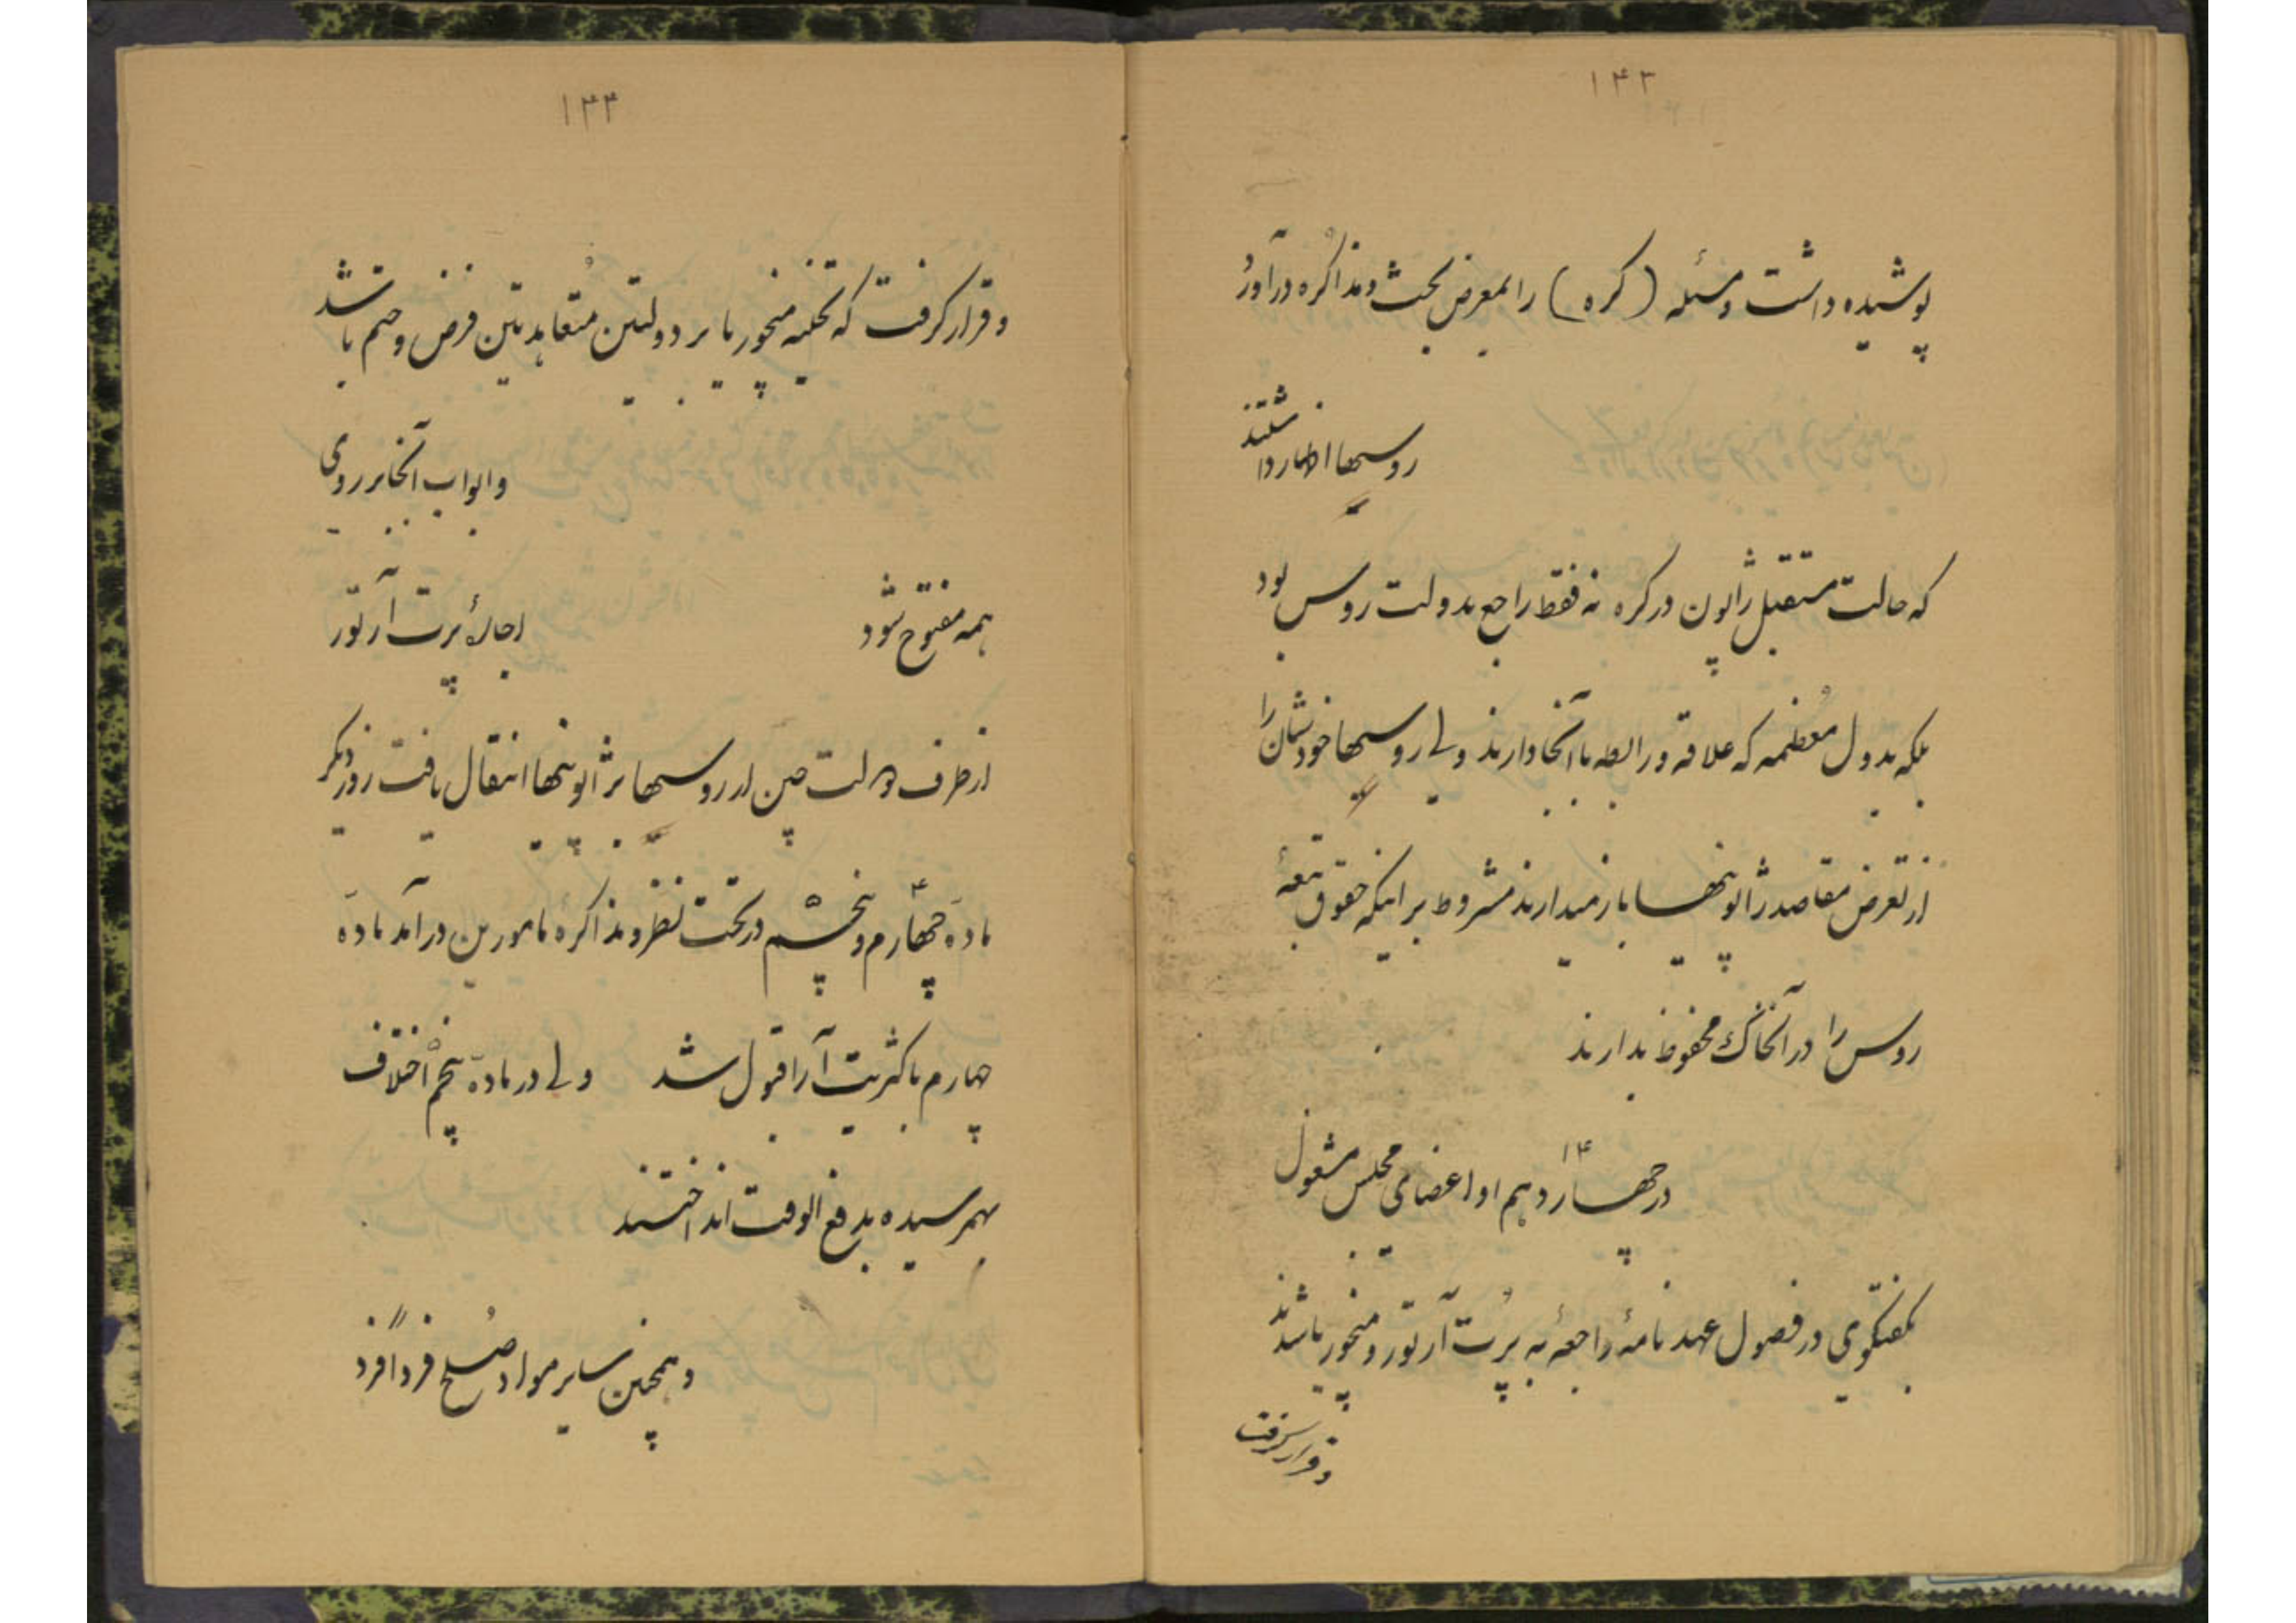 ۱۴۳
پوشیده داشت و مسئله (کره) را بمعرض بحث و مذاکره درآورد
روسیها اظهار داشتند
که حالت مستقبل ژاپون در کره نه فقط راجع بدولت روس بود
بلکه بدول معظمه که علاقه و رابطه با آنجا دارند ولی روسیها خودشان را
از تعرض مقاصد ژاپونیها باز میدارند مشروط بر اینکه حقوق تبعهٔ
روس را در آنخاک محفوظ بدارند
در چهاردهم ۱۴ اوت اعضای مجلس مشغول
بگفتگوی در فصول عهدنامهٔ راجعهٔ به پُرت آرتور و منچوریا شدند
و قرار گرفت
۱۴۴
و قرار گرفت که تخلیه منچوریا بر دولتین مُتعاهدتین فرض و حتم باشد
و ابواب آنجا بر روی
همه مفتوح شود اجارهٔ پرت آرتور
از طرف دولت چین از روسیها بژاپونیها انتقال یافت روز دیگر
مادهٔ چهارم ۴ و پنجم ۵ در تحت نظر و مذاکرهٔ مامورین درآمد مادهٔ
چهارم باکثریت آرا قبول شد ولی در مادهٔ پنجم ۵ اختلاف
بهمرسیده بدفع الوقت انداختند
و همچنین سایر مواد صُلح فرداً فرد